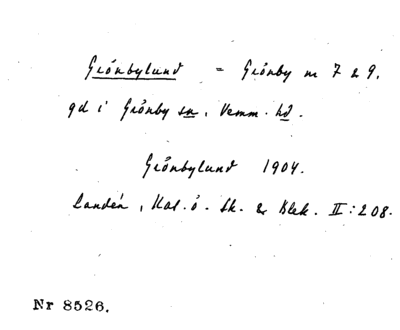 Grönbylund = Grönby nr 7 & 9.
gd i Grönby sn, Vemm. hd.
Grönbylund 1904.
Landén, Kat. ö. Sk. & Blek. II: 208.
Nr 8526.